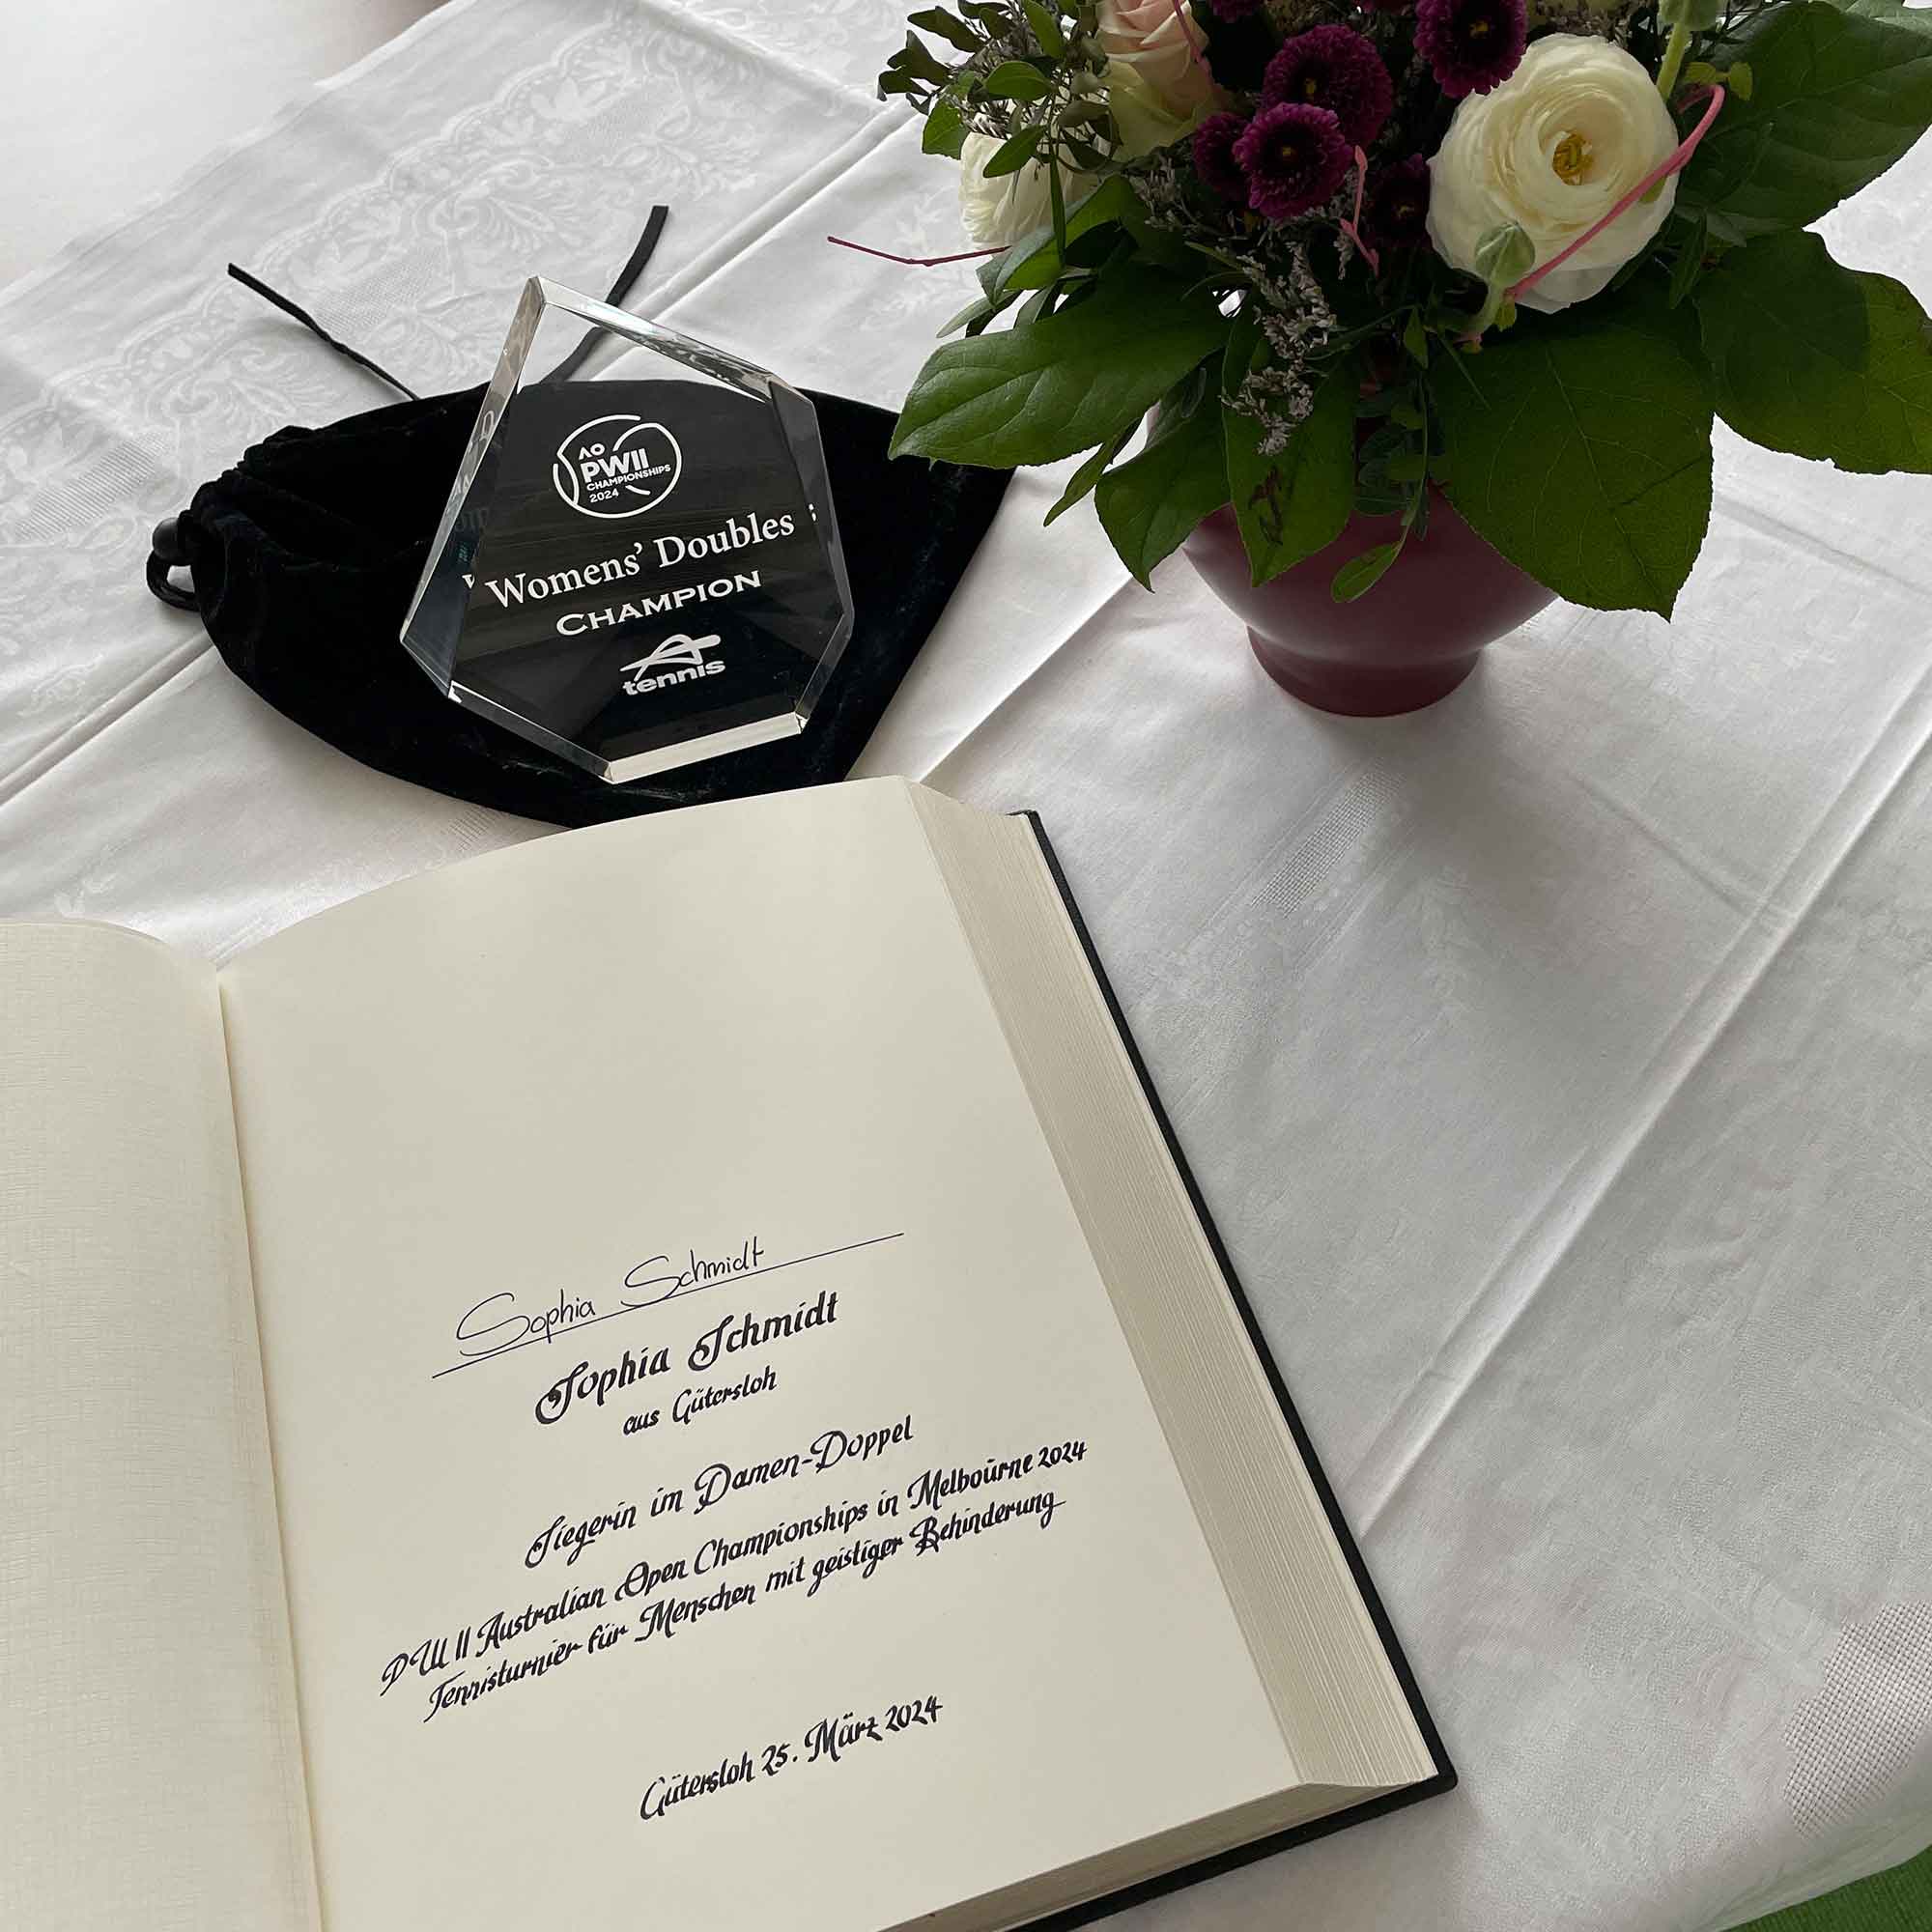 AO
PWII
CHAMPIONSHIPS
2024
Womens' Doubles
CHAMPION
tennis
Sophia Schmidt
Sophia Schmidt
aus Gütersloh
Siegerin im Damen-Doppel
PW II Australian Open Championships in Melbourne 2024
Tennisturnier für Menschen mit geistiger Behinderung
Gütersloh 25. März 2024